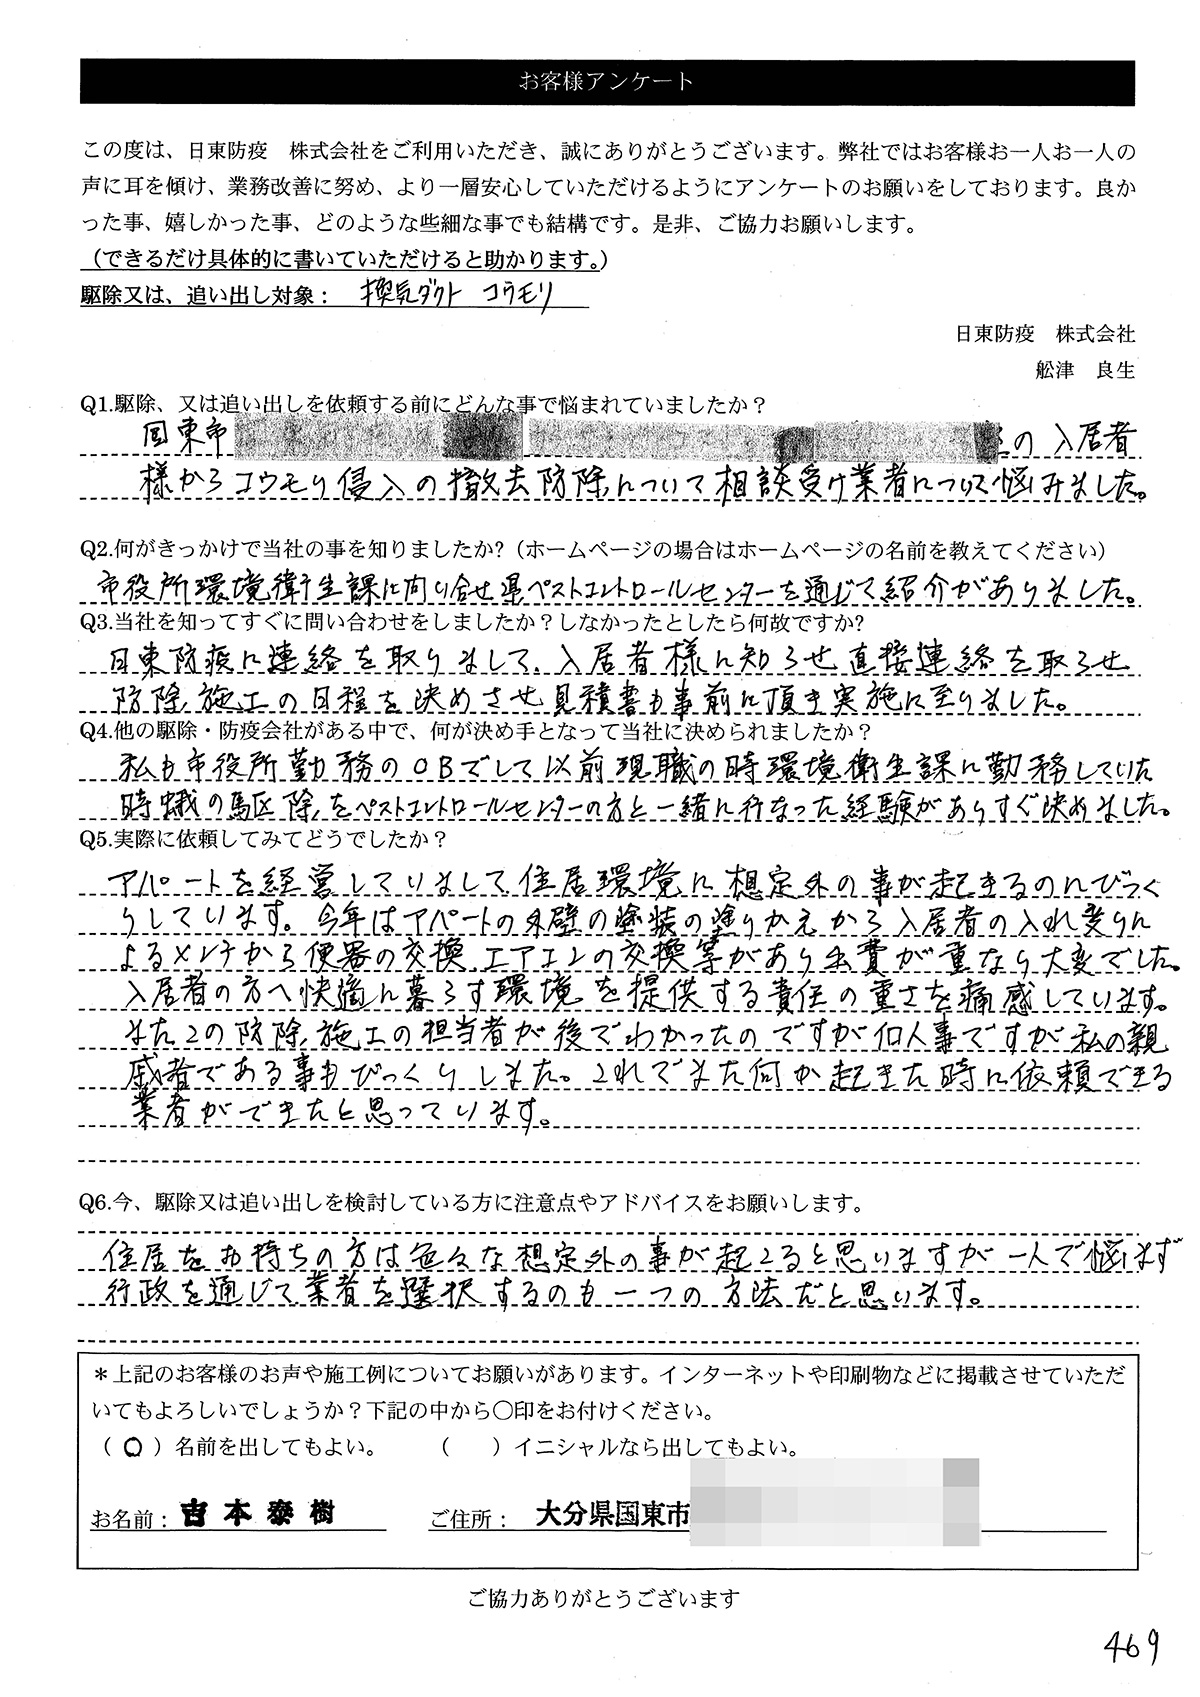 お客様アンケート
この度は、日東防疫　株式会社をご利用いただき、誠にありがとうございます。弊社ではお客様お一人お一人の
声に耳を傾け、業務改善に努め、より一層安心していただけるようにアンケートのお願いをしております。良か
った事、嬉しかった事、どのような些細な事でも結構です。是非、ご協力お願いします。
（できるだけ具体的に書いていただけると助かります。）
駆除又は、追い出し対象： 換気ダクト コウモリ
日東防疫　株式会社
舩津　良生
Q1.駆除、又は追い出しを依頼する前にどんな事で悩まれていましたか？
国東市 の入居者
様からコウモリ侵入の撤去防除について相談受け業者について悩みました。
Q2.何がきっかけで当社の事を知りましたか?（ホームページの場合はホームページの名前を教えてください）
市役所環境衛生課に問い合せ県ペストコントロールセンターを通じて紹介がありました。
Q3.当社を知ってすぐに問い合わせをしましたか？しなかったとしたら何故ですか?
日東防疫に連絡を取りまして、入居者様に知らせ直接連絡を取らせ
防除施工の日程を決めさせ見積書も事前に頂き実施に至りました。
Q4.他の駆除・防疫会社がある中で、何が決め手となって当社に決められましたか？
私も市役所勤務のOBでして以前現職の時環境衛生課に勤務していた
時蛾の駆除をペストコントロールセンターの方と一緒に行なった経験がありすぐ決めました。
Q5.実際に依頼してみてどうでしたか？
アパートを経営していまして住居環境に想定外の事が起きるのにびっく
りしています。今年はアパートの外壁の塗装の塗りかえから入居者の入れ変りに
よるメンテから便器の交換、エアコンの交換等があり出費が重なり大変でした。
入居者の方へ快適に暮らす環境を提供する責任の重さを痛感しています。
またこの防除施工の担当者が後でわかったのですが個人事ですが私の親
戚者である事もびっくりしました。これでまた何か起きた時に依頼できる
業者ができたと思っています。
Q6.今、駆除又は追い出しを検討している方に注意点やアドバイスをお願いします。
住居をお持ちの方は色々な想定外の事が起こると思いますが一人で悩まず
行政を通じて業者を選択するのも一つの方法だと思います。
＊上記のお客様のお声や施工例についてお願いがあります。インターネットや印刷物などに掲載させていただ
いてもよろしいでしょうか？下記の中から〇印をお付けください。
（ 〇 ）名前を出してもよい。　　（　　）イニシャルなら出してもよい。
お名前： 吉本泰樹　　ご住所： 大分県国東市
ご協力ありがとうございます
469